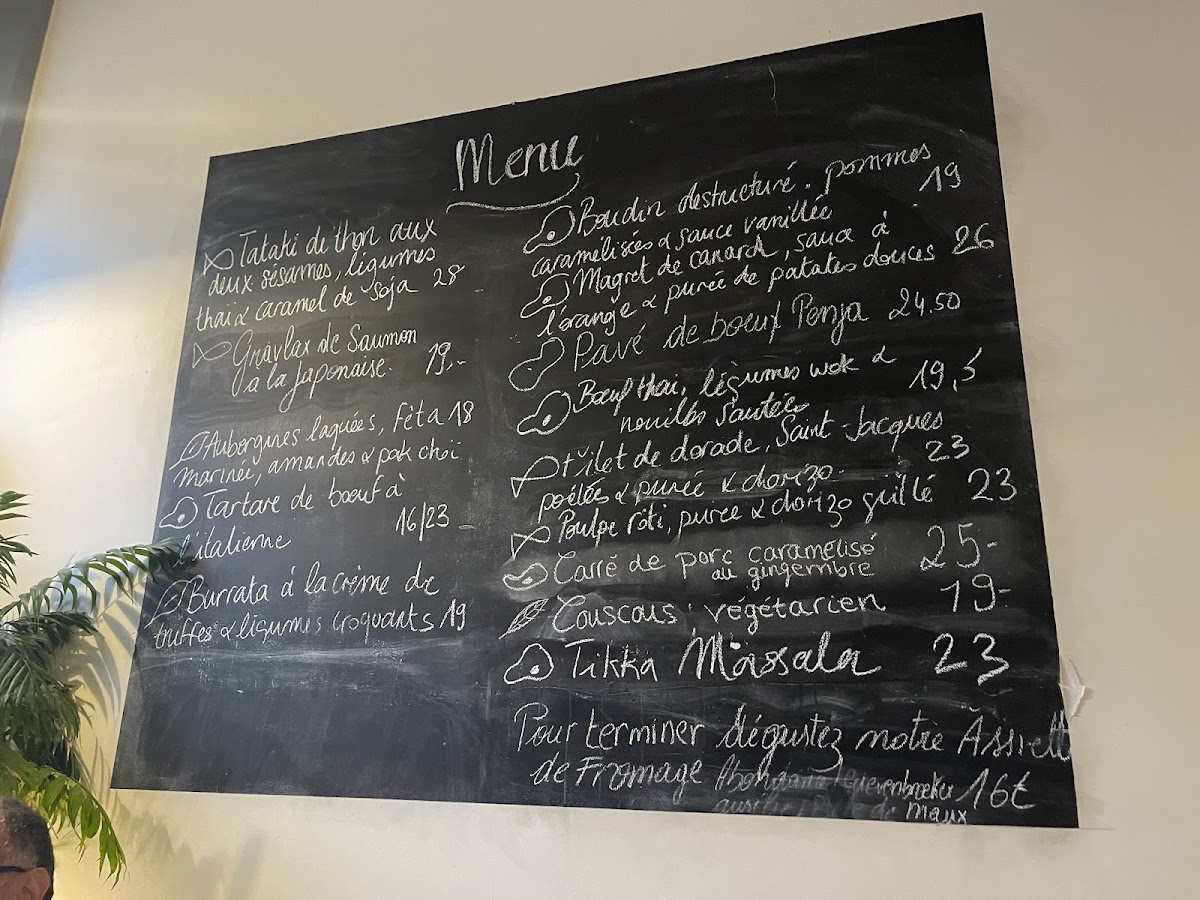 Menu
Tataki de thon aux
deux sésames, légumes
thaï & caramel de soja 28
Gravlax de Saumon
à la Japonaise. 19,-
Aubergines laquées, Fêta 18
marinée, amandes & pak choï
Tartare de bœuf à
l'italienne 16/23
Burrata à la crème de
truffes & légumes croquants 19
Boudin destructuré, pommes
caramélisées & sauce vanillée 19
Magret de canard, sauce à
l'orange & purée de patates douces 26
Pavé de bœuf Penja 24.50
Bœuf thaï, légumes wok &
nouilles sautées 19,5
Filet de dorade, Saint-Jacques
poêlées & purée & chorizo. 23
Poulpe rôti, purée & chorizo grillé 23
Carré de porc caramélisé
au gingembre 25-
Couscous végétarien 19-
Tikka Massala 23
Pour terminer dégustez notre Assiett
de Fromage 16€
de meaux